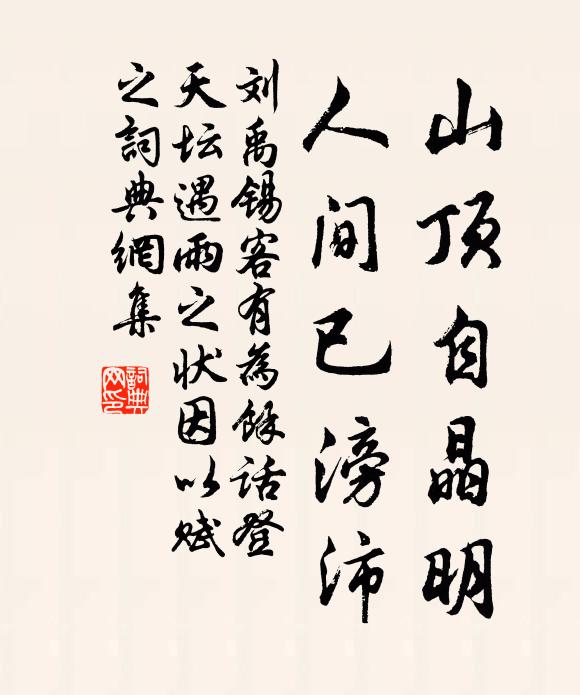 山顶自晶明
人间已滂沛
刘禹锡客有為餘話登
天坛遇雨之状因以赋
之詞典網集
詞典
网印